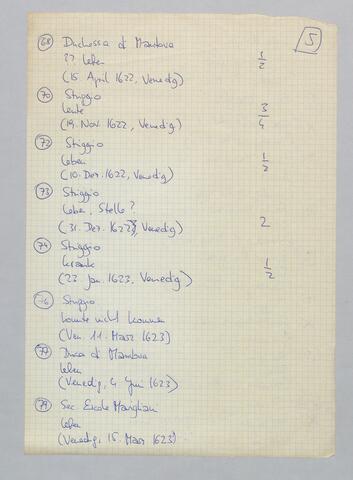 5
68 Duchessa d Mantova
?? Leben
(15. April 1622, Venedig) 1/2
70 Striggio
Leute 3/4
(19. Nov. 1622, Venedig)
72 Striggio
Leben 1/2
(10. Dez. 1622, Venedig)
73 Striggio
Leben, Stelle?
(31. Dez. 1622, Venedig) 2
74 Striggio
krank 1/2
(23. Jan. 1623, Venedig)
76 Striggio
konnte nicht kommen
(Ven. 11. März 1623)
77 Duca d Mantova
Leben
(Venedig, 4. Juni 1623)
79 Sec Ercole Marigliani
Leben
(Venedig, 15. März 1623)